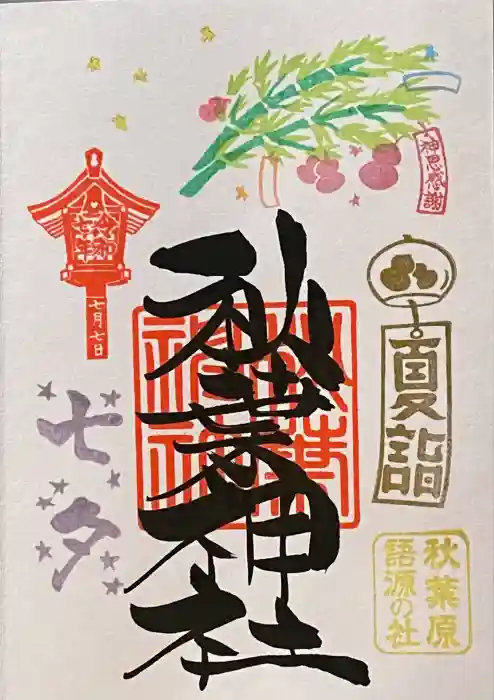 神恩感謝
夏詣
七月七日
秋葉神社
秋葉神社
七夕
秋葉原
語源の社